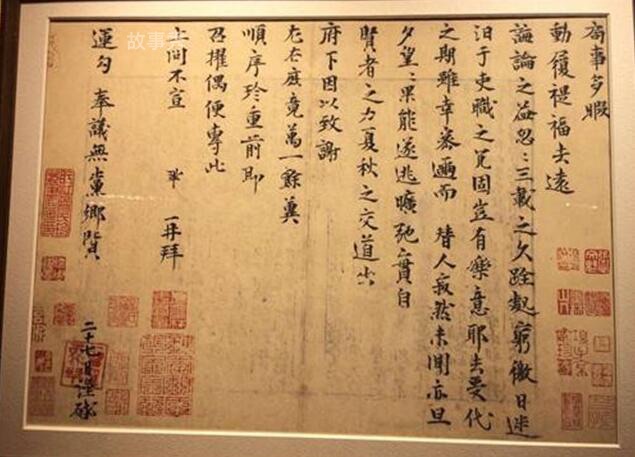 局事多暇
動履禔福去遠
議論之益忽〻三載之久跧處窮徼日迷
汨于吏職之冗固豈有樂意耶去受代
之期雖幸密邇而 替人寂然未聞亦旦
夕望〻果能遂逃曠弛實自
賢者之力夏秋之交道出
府下因以致謝
左右庶竟萬一餘冀
順序珍重前即
召擢偶便專此
上問不宣 鞏 再拜
運勾 奉議無黨鄉賢
二十七日謹啓
故事